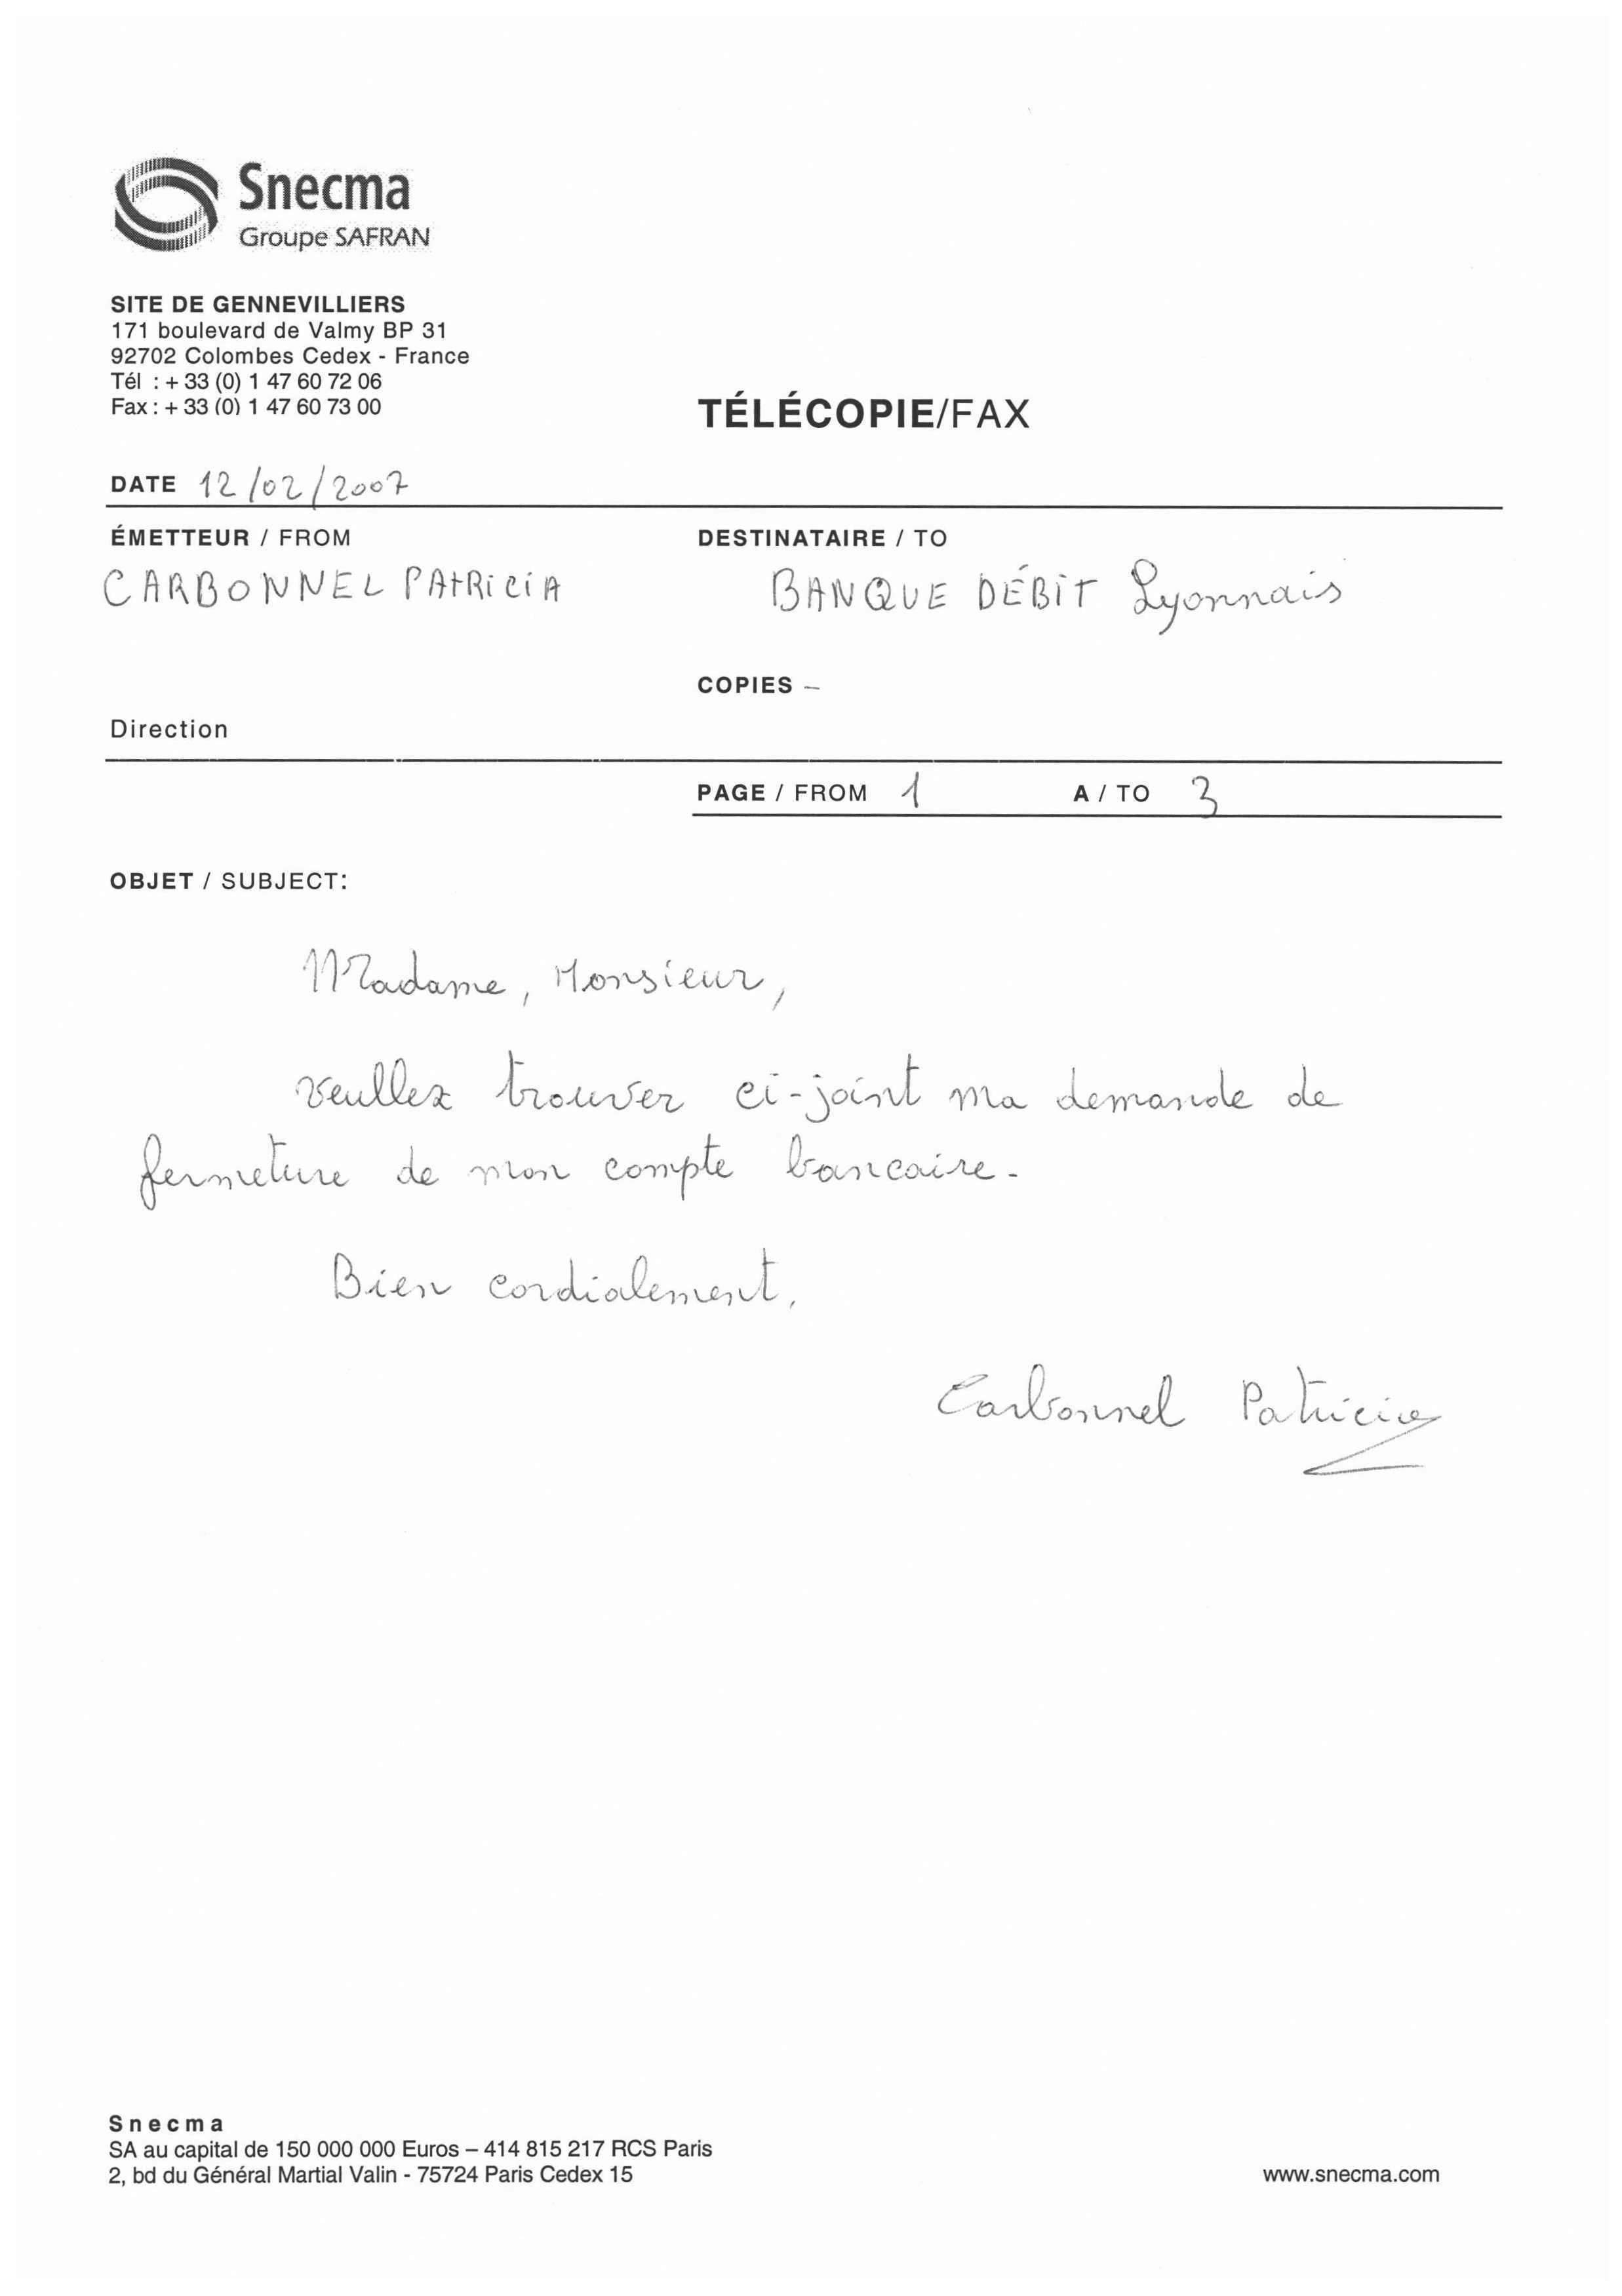 Snecma
Groupe SAFRAN
SITE DE GENNEVILLIERS
171 boulevard de Valmy BP 31
92702 Colombes Cedex - France
Tél : + 33 (0) 1 47 60 72 06
Fax : + 33 (0) 1 47 60 73 00
TÉLÉCOPIE/FAX
DATE 12/02/2007
ÉMETTEUR / FROM DESTINATAIRE / TO
CARBONNEL PATRICIA BANQUE DÉBIT Lyonnais
COPIES -
Direction
PAGE / FROM 1 A / TO 3
OBJET / SUBJECT:
Madame, Monsieur,
veullez trouver ci-joint ma demande de
fermeture de mon compte bancaire.
Bien cordialement,
Carbonnel Patricia
Snecma
SA au capital de 150 000 000 Euros – 414 815 217 RCS Paris
2, bd du Général Martial Valin - 75724 Paris Cedex 15 www.snecma.com